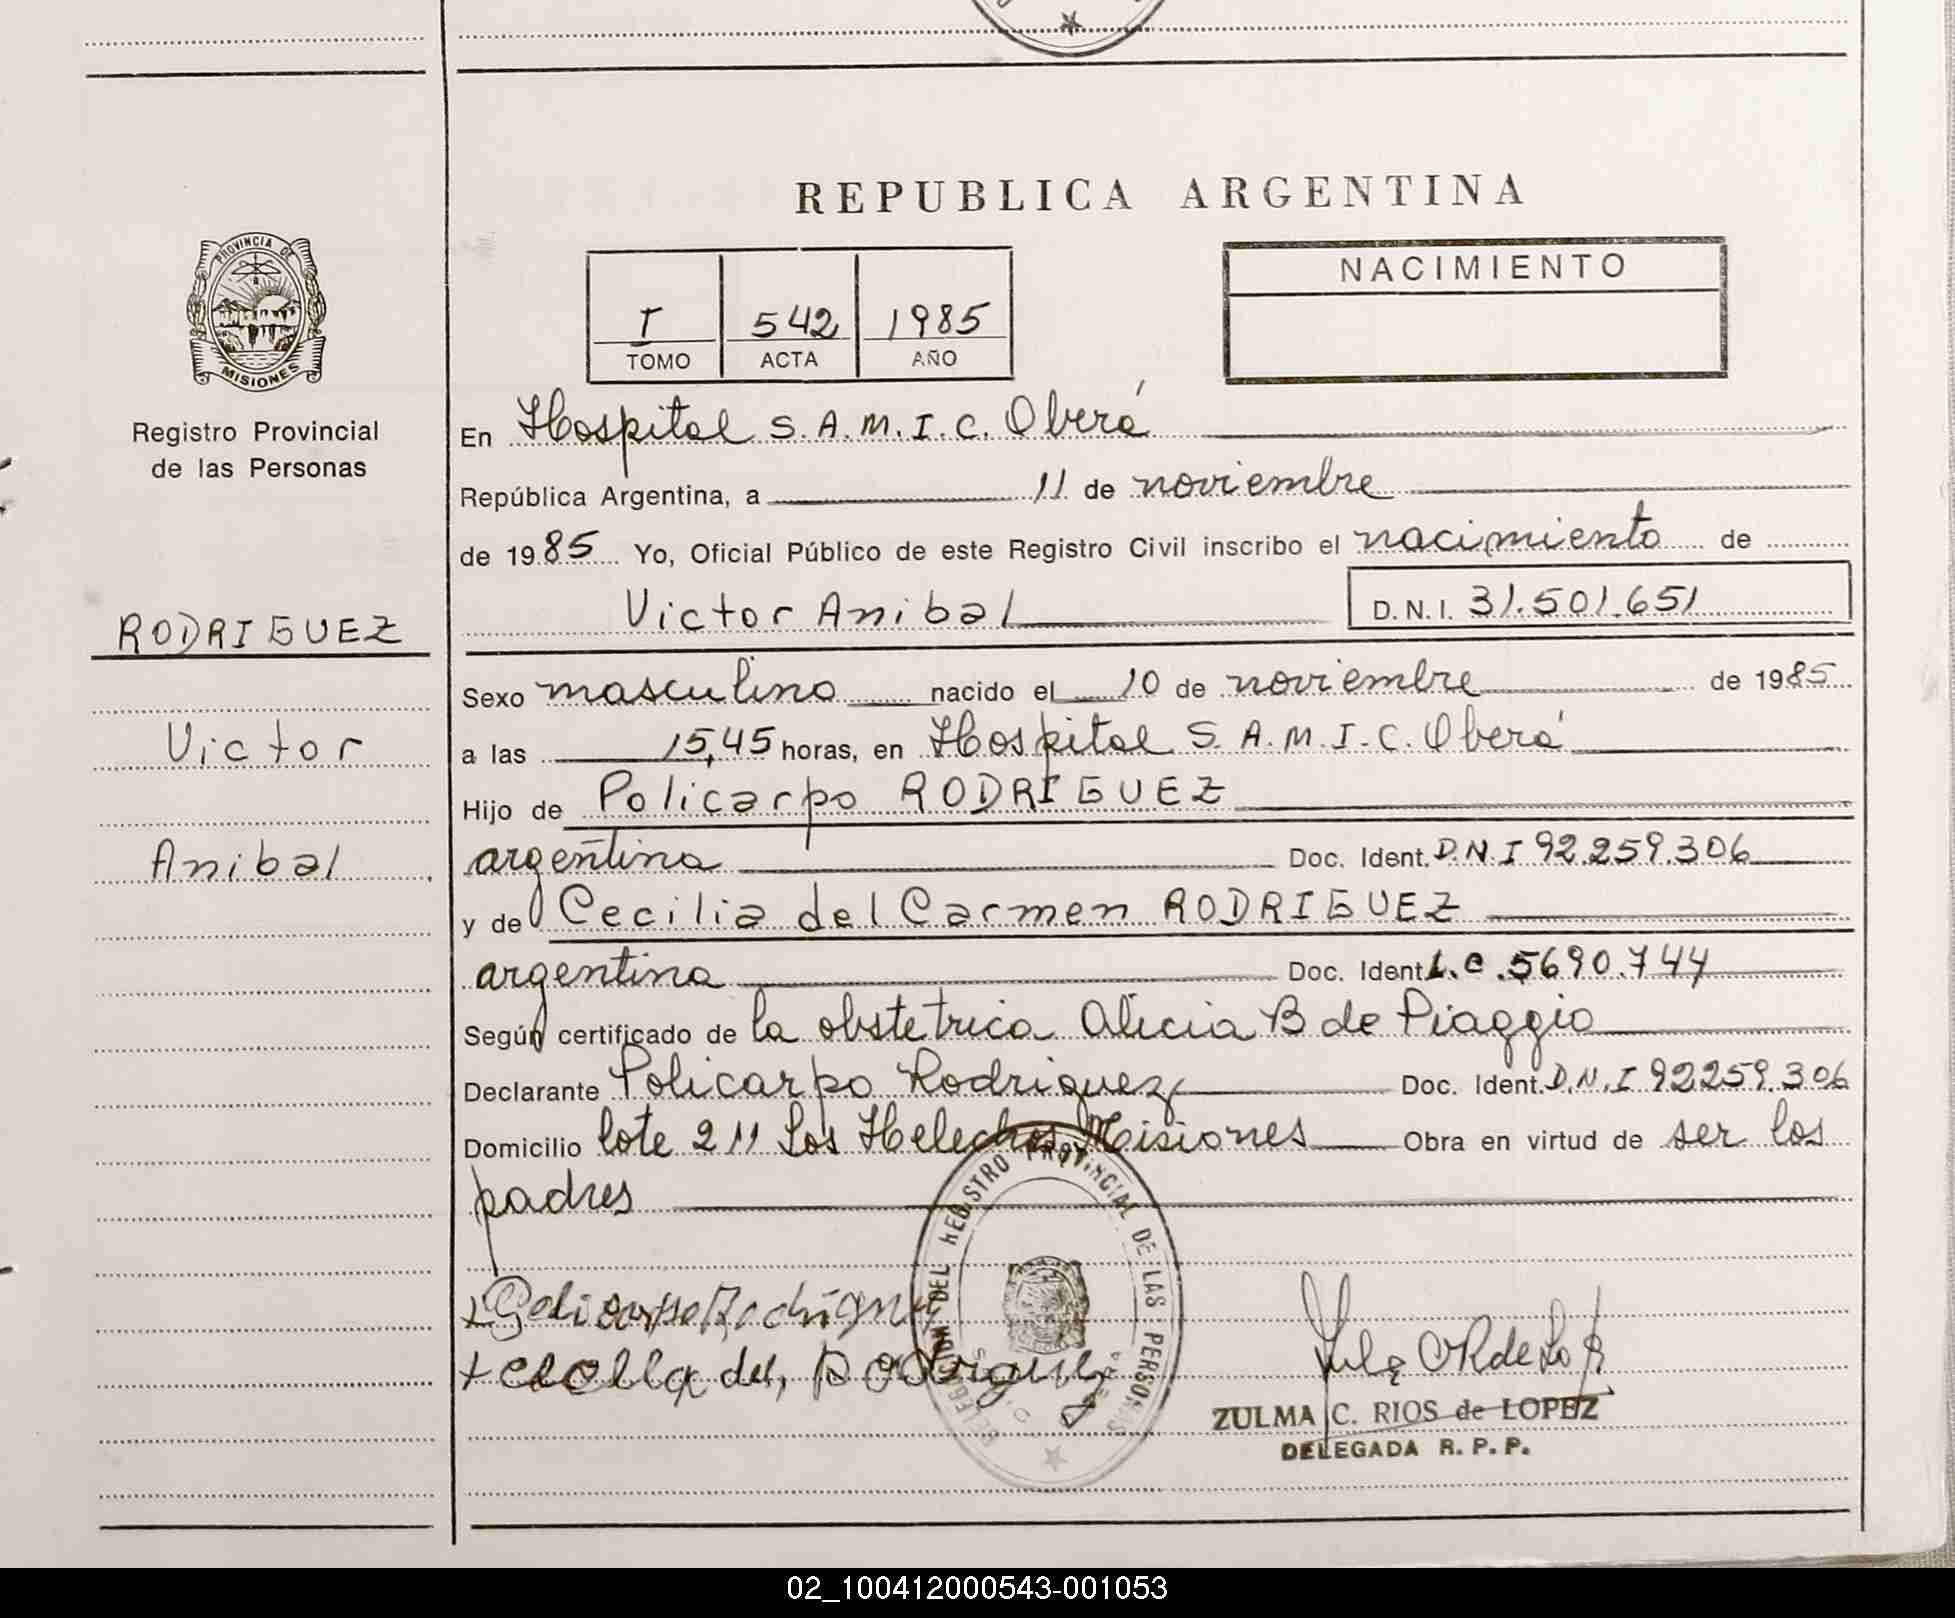 REPUBLICA ARGENTINA
PROVINCIA DE
MISIONES
Registro Provincial
de las Personas
RODRIGUEZ
Victor
Anibal
I 542 1985
TOMO ACTA AÑO
NACIMIENTO
En Hospital S.A.M.I.C. Oberá
República Argentina, a 11 de noviembre
de 1985 Yo, Oficial Público de este Registro Civil inscribo el nacimiento de
Victor Anibal D.N.I. 31.501.651
Sexo masculino nacido el 10 de noviembre de 1985
a las 15,45 horas, en Hospital S.A.M.I.C. Oberá
Hijo de Policarpo RODRIGUEZ
argentina Doc. Ident. D.N.I 92.259.306
y de Cecilia del Carmen RODRIGUEZ
argentina Doc. Ident L.C. 5690.744
Según certificado de la obstetrica Alicia B de Piaggio
Declarante Policarpo Rodriguez Doc. Ident. D.N.I 92259.306
Domicilio lote 211 Los Helechos Misiones Obra en virtud de ser los
padres
DELEGACION DEL REGISTRO PROVINCIAL DE LAS PERSONAS
ZULMA C. RIOS de LOPEZ
DELEGADA R. P. P.
02_100412000543-001053